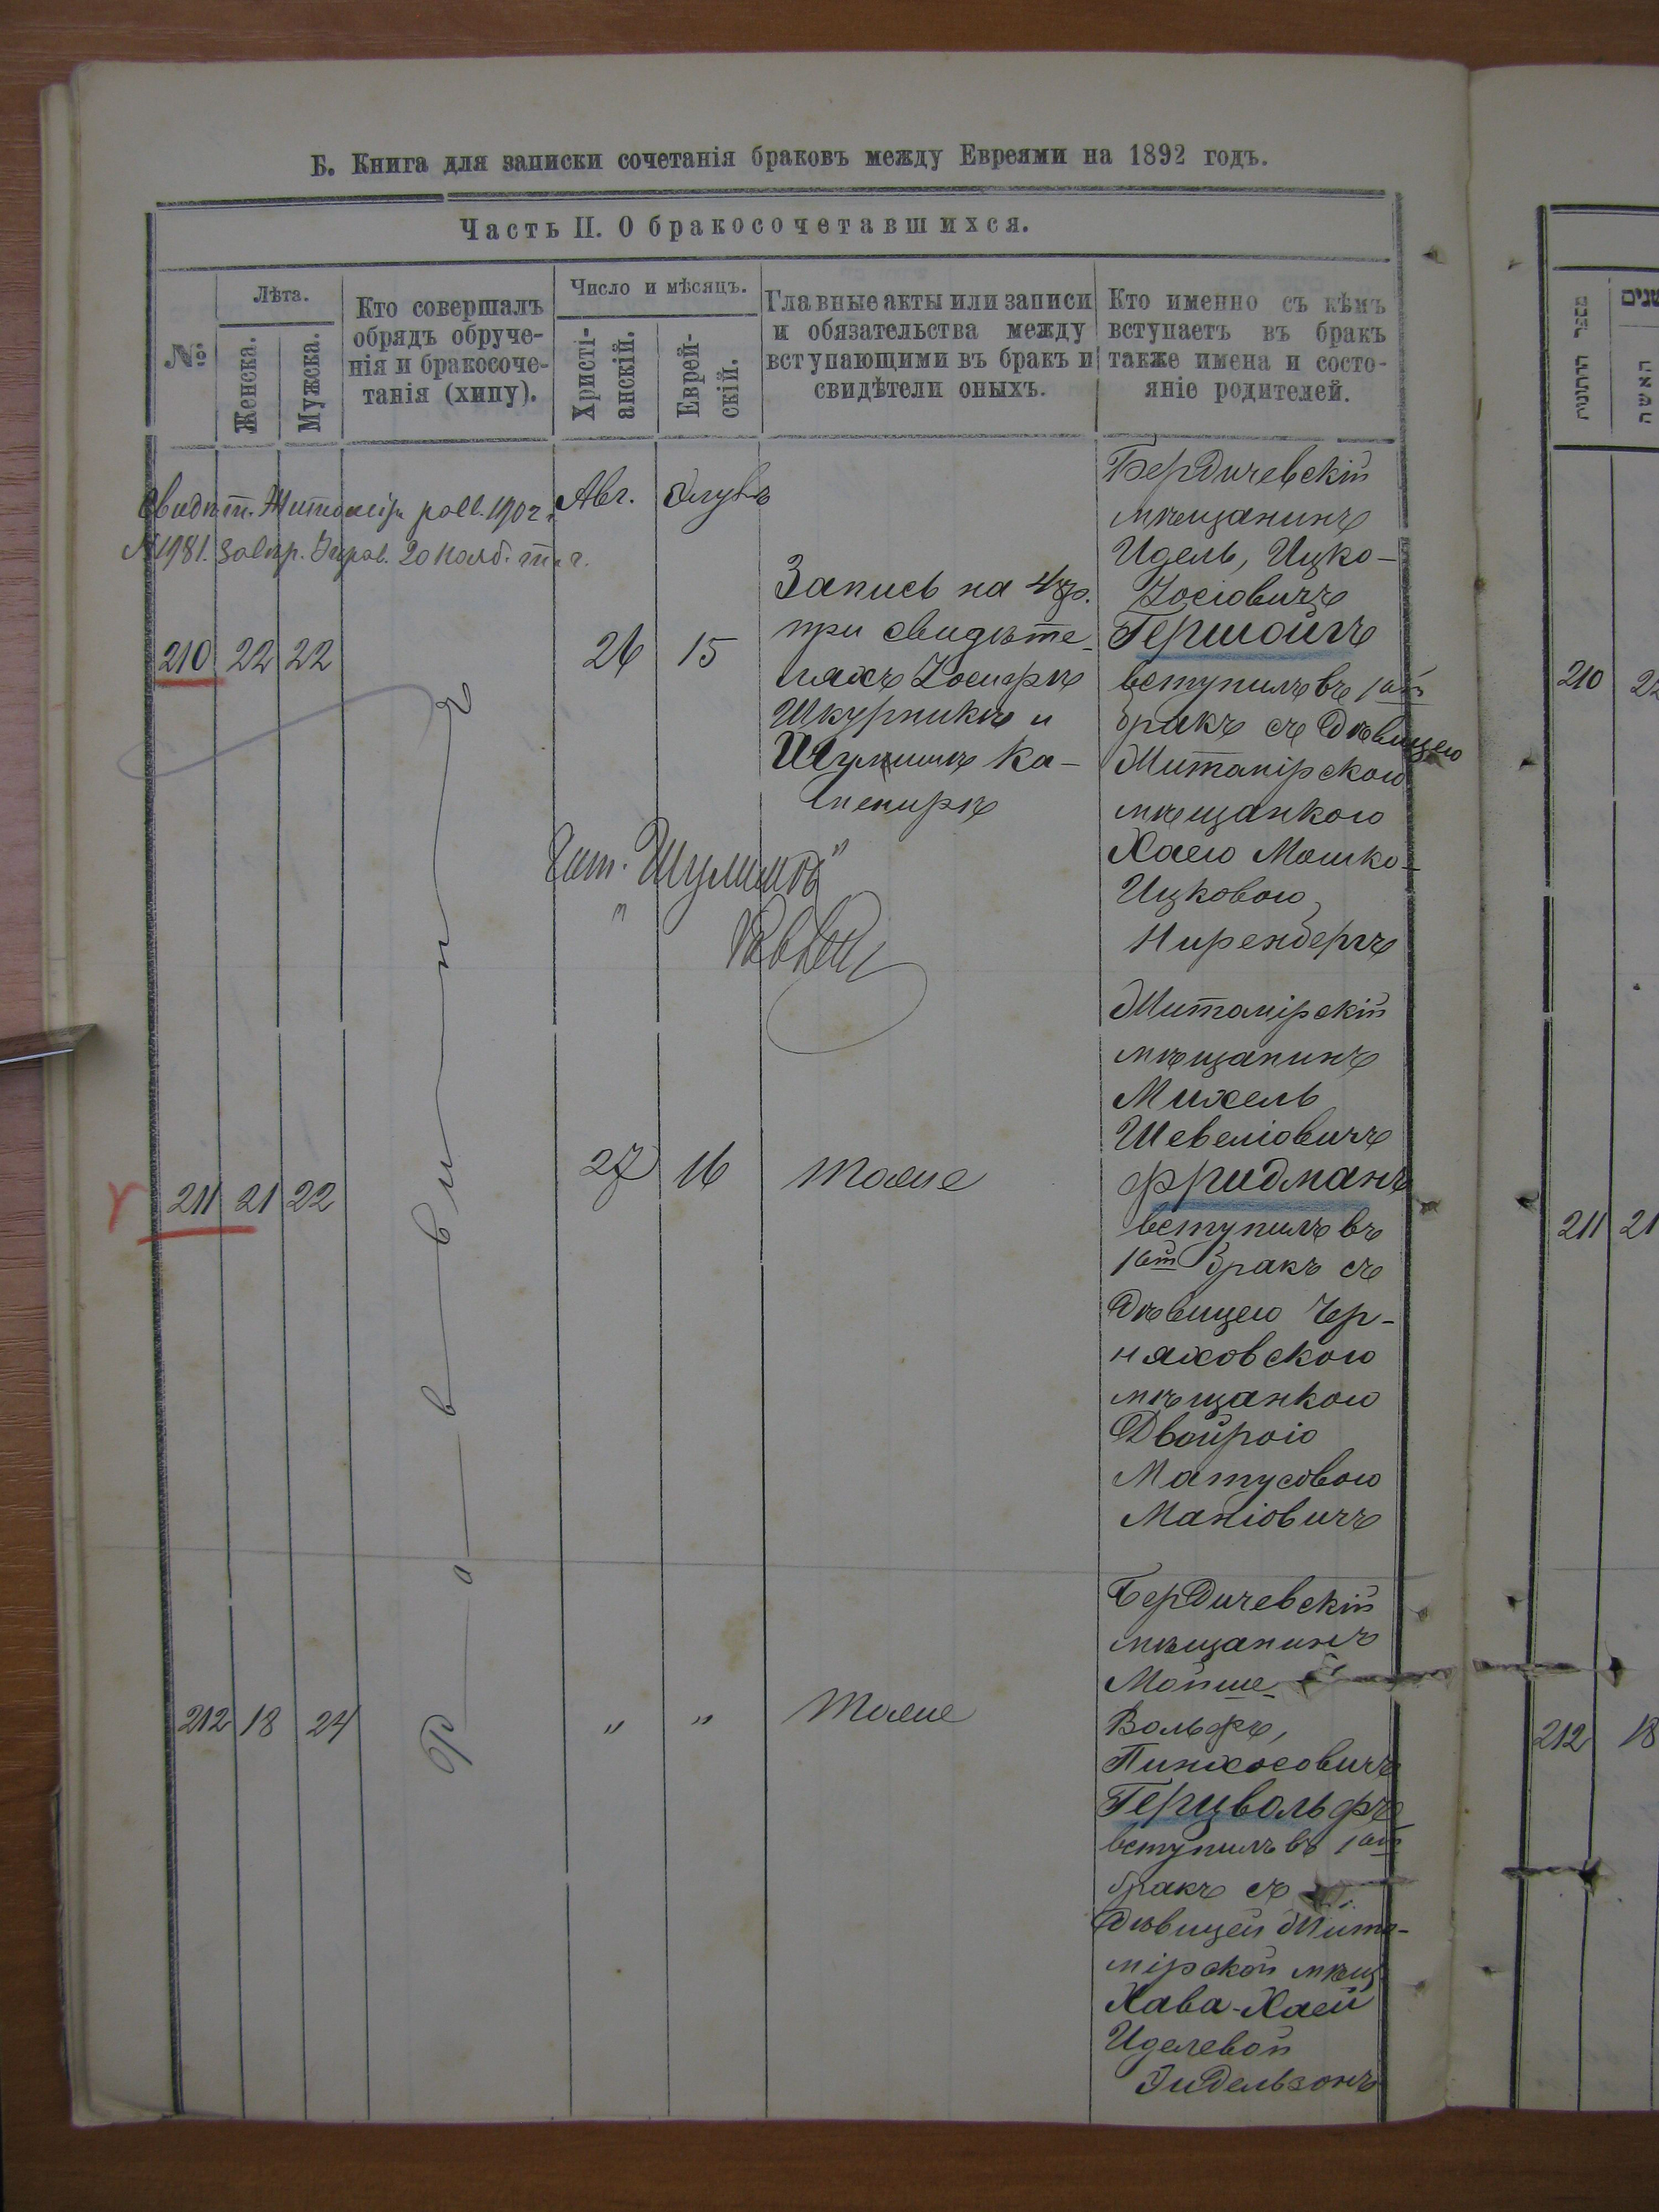 Б. Книга для записки сочетанія браковъ между Евреями на 1892 годъ.
Часть II. О бракосочетавшихся.
№
Лѣта.
Женска.
Мужска.
Кто совершалъ
обрядъ обруче-
нія и бракосоче-
танія (хипу).
Число и мѣсяцъ.
Христі-
анскій.
Еврей-
скій.
Главные акты или записи
и обязательства между
вступающими въ бракъ и
свидѣтели оныхъ.
Кто именно съ кѣмъ
вступаетъ въ бракъ
также имена и состо-
яніе родителей.
Раввинъ
Авг.
Элулъ
210
22
22
26
15
Запись на 48 р.
при свидѣте-
ляхъ Іосифѣ
Шкурникѣ и
Шулимѣ Ка-
Чит. "Шулимъ"
" Раввинъ
Бердичевскій
мѣщанинъ
Идель, Ицко-
Іосіовичъ
Гершойгъ
вступилъ въ 1ый
бракъ съ дѣвицею
Житомірскою
мѣщанкою
Хаею Мошко-
Ицковою
Ниренбергъ
211
21
22
27
16
Тоже
Житомірскій
мѣщанинъ
Михель
Шевеліовичъ
Фридманъ
вступилъ въ
1ый бракъ съ
дѣвицею Чер-
няховскою
мѣщанкою
Двойрою
Матусовою
Маніовичъ
212
18
24
"
"
Тоже
Бердичевскій
мѣщанинъ
Мойше-
Вольфъ,
Пинхосовичъ
Герцвольфъ
вступилъ въ 1ый
бракъ съ
дѣвицей Жито-
мірской мѣщ
Хава-Хаей
Иделевой
Зидельзонъ
מספר החתונות
שנים
האשה
210
22
211
21
212
18